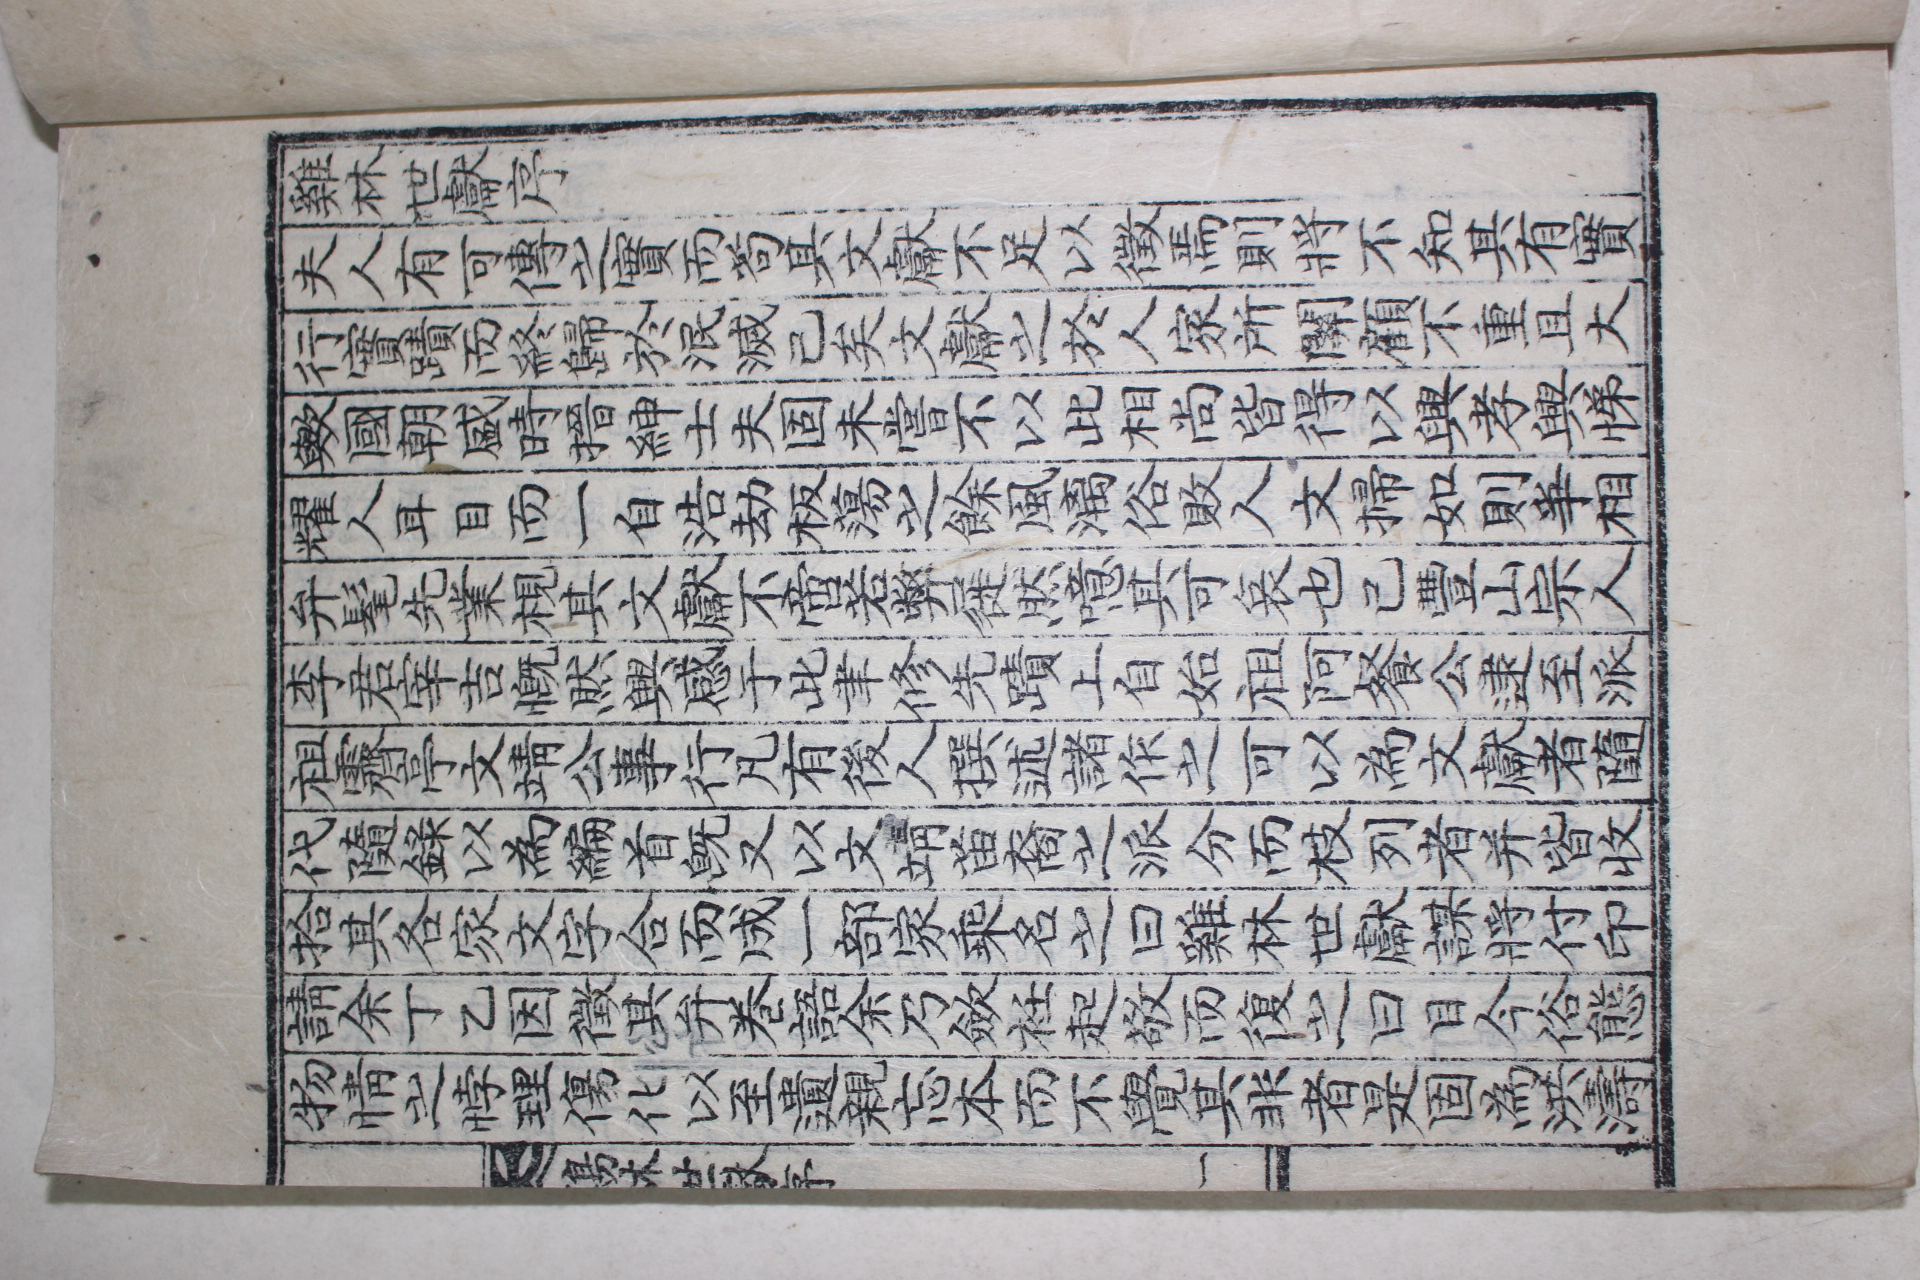 雞林世獻序
夫人有可傳之實而苟其文獻不足以徵焉則將不知其有實
行實蹟而終歸於泯滅已矣文獻之於人家所關顧不重且大
歟國朝盛時搢紳士夫固未嘗不以此相尚皆得以興孝興悌
耀人耳目而一自浩劫板蕩之餘風漓俗敗人文掃如則率相
弁髦先業視其文獻不啻若弊屣然噫其可哀也已豐山宗人
李君宰吉慨然興感于此聿修先蹟上自始祖阿飡公諱至派
祖霽亭文靖公事行凡有後人撰述諸作之可以為文獻者隨
代隨錄以為編首既又以文靖苗裔之派分而枝列者并皆收
拾其各家文字合而成一部家乘名之曰雞林世獻謀將付印
請余丁乙因徵其弁卷語余乃斂衽起敬而復之曰目今俗態
物情之悖理傷化以至遺親忘本而不覺其非者是固為洪濤
林世獻序 一